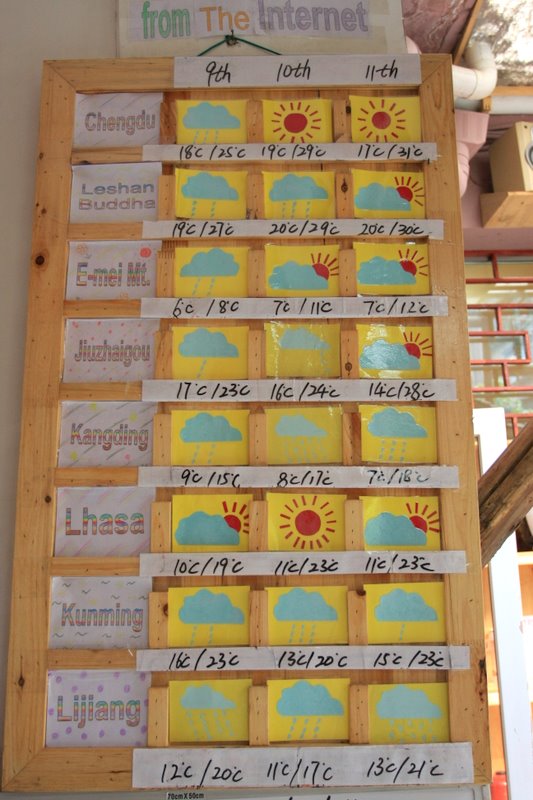 from The Internet
9th 10th 11th
Chengdu
18°C/25°C 19°C/29°C 17°C/31°C
Leshan
Buddha
19°C/27°C 20°C/29°C 20°C/30°C
E-mei Mt.
6°C/8°C 7°C/11°C 7°C/12°C
Jiuzhaigou
17°C/23°C 16°C/24°C 14°C/28°C
Kangding
9°C/15°C 8°C/17°C 7°C/18°C
Lhasa
10°C/19°C 11°C/23°C 11°C/23°C
Kunming
16°C/23°C 13°C/20°C 15°C/23°C
Lijiang
12°C/20°C 11°C/17°C 13°C/21°C
70cm X 50cm